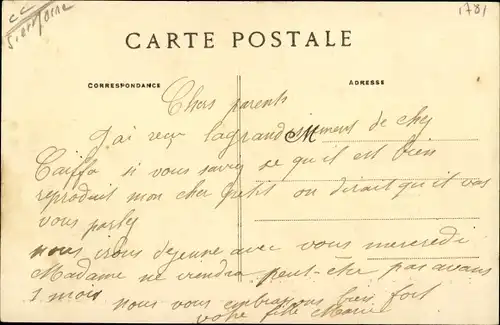 CC
1781
CARTE POSTALE
CORRESPONDANCE
ADRESSE
Chers parents
J'ai reçu lagrandissement de chez
Caiffa si vous saviez se qu'il est bien
reproduit mon cher petit on dirait qu'il vas
vous parler
nous irons dejeune avec vous mercredi
Madame ne viendra peut-être pas avans
1 mois nous vous embrassons bien fort
votre fille Marie